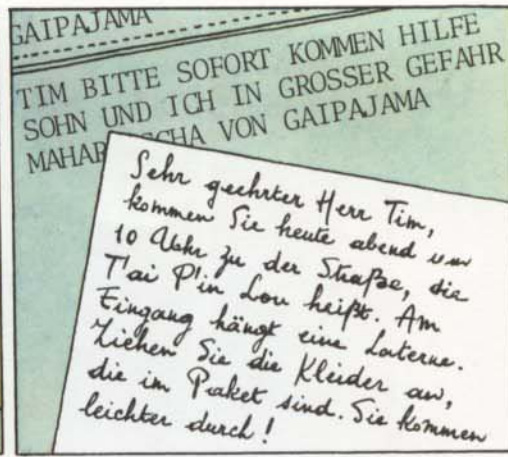 GAIPAJAMA
TIM BITTE SOFORT KOMMEN HILFE
SOHN UND ICH IN GROSSER GEFAHR
MAHAR SCHA VON GAIPAJAMA
Sehr geehrter Herr Tim,
kommen Sie heute abend um
10 Uhr zu der Straße, die
T'ai P'in Lou heißt. Am
Eingang hängt eine Laterne.
Ziehen Sie die Kleider an,
die im Paket sind. Sie kommen
leichter durch!